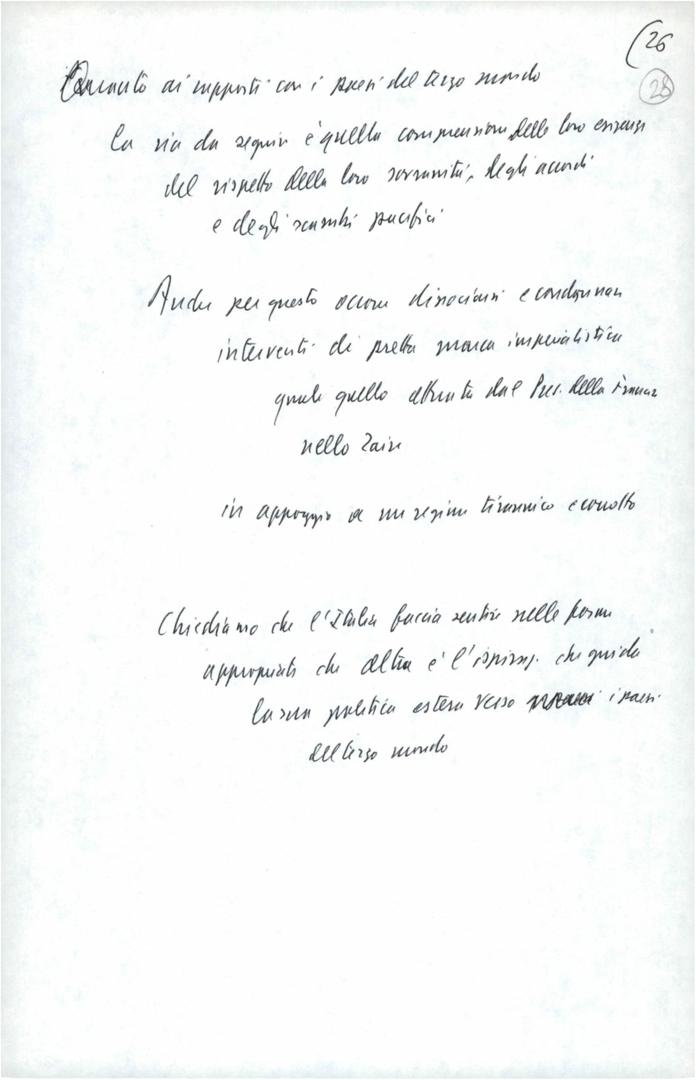 26
28
Quanto ai rapporti con i paesi del terzo mondo
la via da seguire è quella comprensione delle loro esigenze
del rispetto della loro sovranità, degli accordi
e degli scambi pacifici
Anche per questo occorre dissociarsi e condannare
interventi di pretta marca imperialistica
quale quello attuato dal Pres. della Francia
nello Zaire
in appoggio a un regime tirannico e corrotto
Chiediamo che l'Italia faccia sentire nelle forme
appropriate che altra è l'ispiraz. che guida
la sua politica estera verso i paesi
del terzo mondo